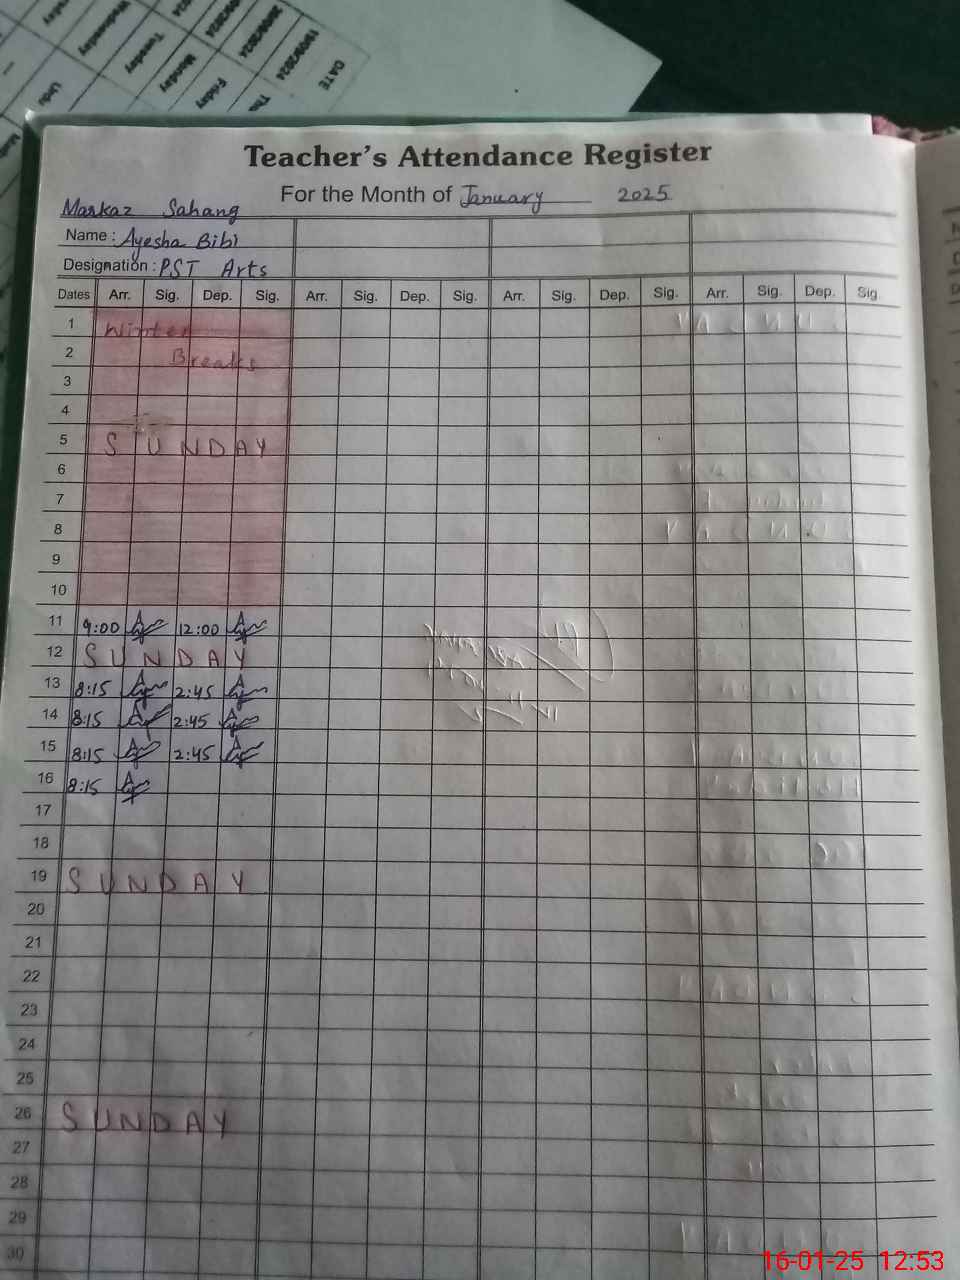 DATE
19/09/2024
20/09/2024
Friday
Monday
Tuesday
Wednesday
Urdu
Teacher's Attendance Register
For the Month of January 2025
Markaz Sahang
Name : Ayesha Bibi
Designation : PST Arts
Dates Arr. Sig. Dep. Sig. Arr. Sig. Dep. Sig. Arr. Sig. Dep. Sig. Arr. Sig. Dep. Sig.
1 Winter
2 Breaks
3
4
5 SUNDAY
6
7
8
9
10
11 9:00 12:00
12 SUNDAY
13 8:15 2:45
14 8:15 2:45
15 8:15 2:45
16 8:15
17
18
19 SUNDAY
20
21
22
23
24
25
26 SUNDAY
27
28
29
30
16-01-25 12:53